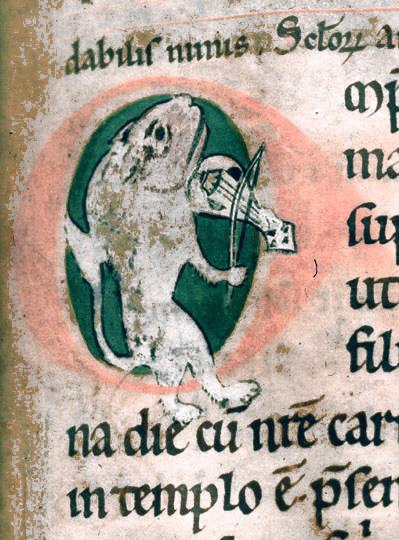 dabiliſ nimis . Sc̄torꝝ a
Omp̄
ma
ſup
ut
fil
na die cū nr̄e car
in templo ē p̄ſen